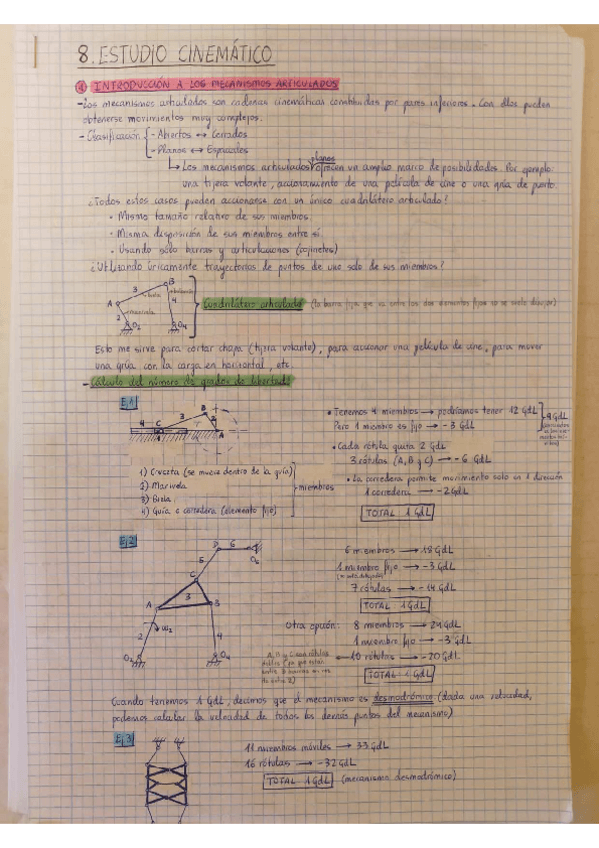 8. ESTUDIO CINEMÁTICO
1 INTRODUCCIÓN A LOS MECANISMOS ARTICULADOS
- Los mecanismos articulados son cadenas cinemáticas constituidas por pares inferiores. Con ellos pueden
obtenerse movimientos muy complejos.
- Clasificación - Abiertos ↔ Cerrados
- Planos ↔ Espaciales
↳ Los mecanismos articulados planos ofrecen un amplio marco de posibilidades. Por ejemplo:
una tijera volante, accionamiento de una película de cine o una grúa de puerto.
¿Todos estos casos pueden accionarse con un único cuadrilátero articulado?
• Mismo tamaño relativo de sus miembros
• Misma disposición de sus miembros entre sí
• Usando sólo barras y articulaciones (cojinetes)
¿Utilizando únicamente trayectorias de puntos de uno solo de sus miembros?
A 3 B biela balancín 4 manivela 2 O2 O4
Cuadrilátero articulado (la barra fija que va entre los dos elementos fijos no se suele dibujar)
Esto me sirve para cortar chapa (tijera volante), para accionar una película de cine, para mover
una grúa con la carga en horizontal, etc.
- Cálculo del número de grados de libertad
Ej.1
4 C 3 B 2 A
• Tenemos 4 miembros → podríamos tener 12 GdL
Pero 1 miembro es fijo → -3 GdL
9 GdL
• Cada rótula quita 2 GdL
3 rótulas (A, B y C) → -6 GdL
• La corredera permite movimiento solo en 1 dirección
1 corredera → -2GdL
TOTAL 1 GdL
1) Cruceta (se mueve dentro de la guía)
2) Manivela
3) Biela
4) Guía o corredera (elemento fijo)
miembros
Ej.2
D 6 O6 5 C 3 A B 2 ω2 4 O2 O4
6 miembros → 18 GdL
1 miembro fijo → -3 GdL
7 rótulas → -14 GdL
TOTAL 1GdL
Otra opción: 8 miembros → 24 GdL
1 miembro fijo → -3 GdL
10 rótulas → -20 GdL
TOTAL 1 GdL
A, B y C son rótulas
dobles
Cuando tenemos 1 GdL, decimos que el mecanismo es desmodrómico (dada una velocidad,
podemos calcular la velocidad de todos los demás puntos del mecanismo)
Ej.3
11 miembros móviles → 33 GdL
16 rótulas → -32 GdL
TOTAL 1 GdL (mecanismo desmodrómico)